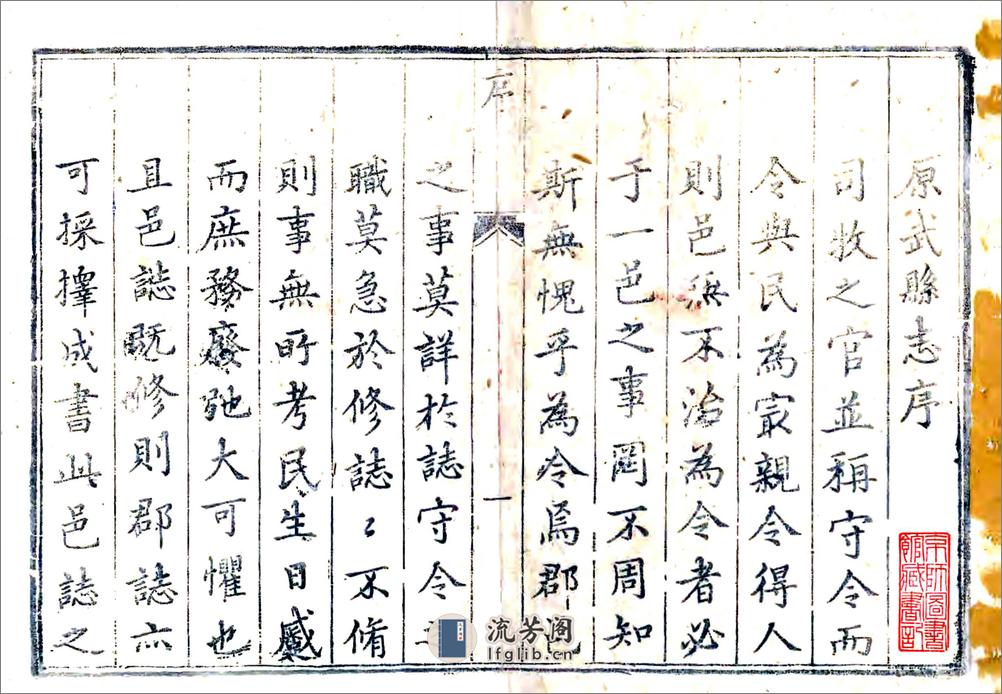 原武縣志序
司牧之官並稱守令而
令與民為冣親令得人
則邑無不治為令者必
于一邑之事罔不周知
斯無愧乎為令焉郡
序
一
之事莫詳於誌守令之
職莫急於修誌〻不脩
則事無所考民生日蹙
而庶務廢弛大可懼也
且邑誌既修則郡誌亦
可採擇成書此邑誌之
流芳阁
lfglib.cn